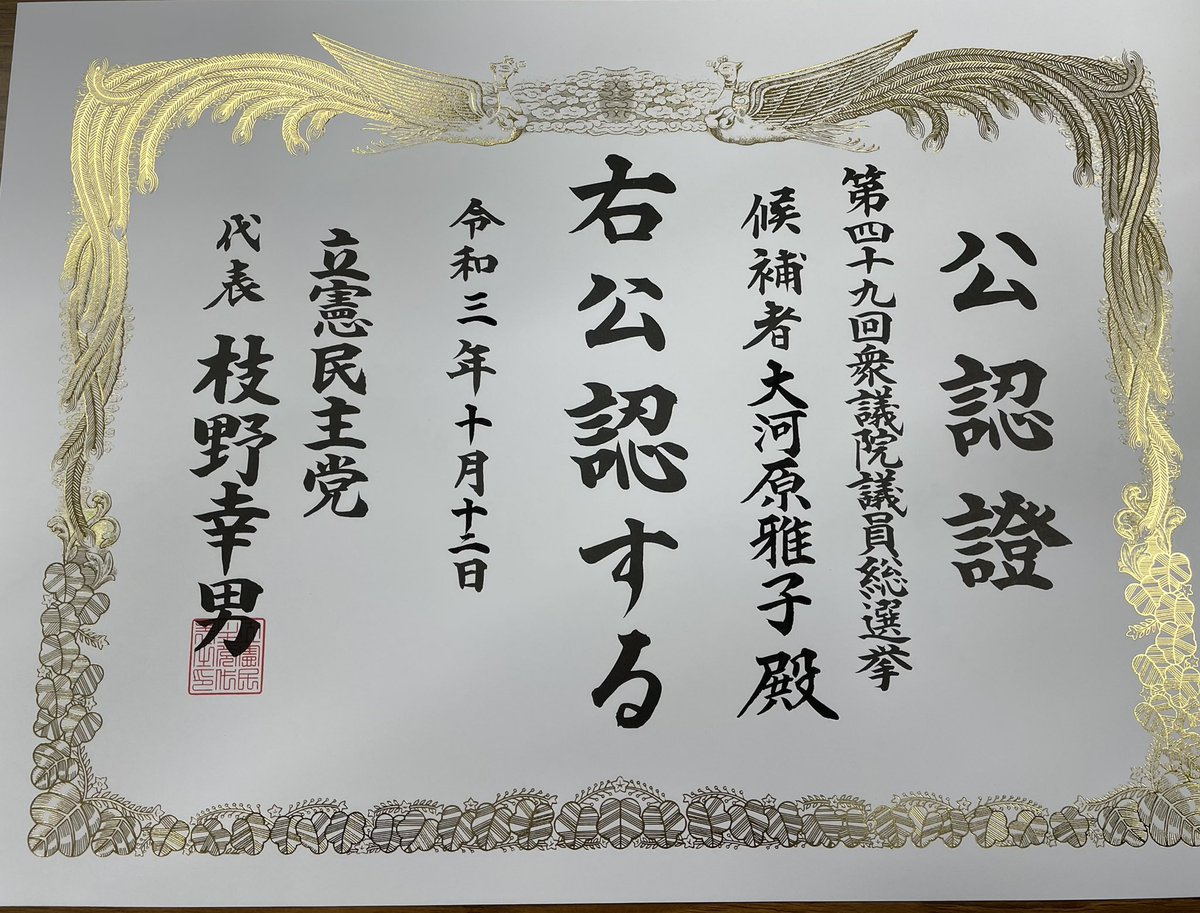 公認證
第四十九回衆議院議員総選挙
候補者大河原雅子殿
右公認する
令和三年十月十二日
立憲民主党
代表 枝野幸男